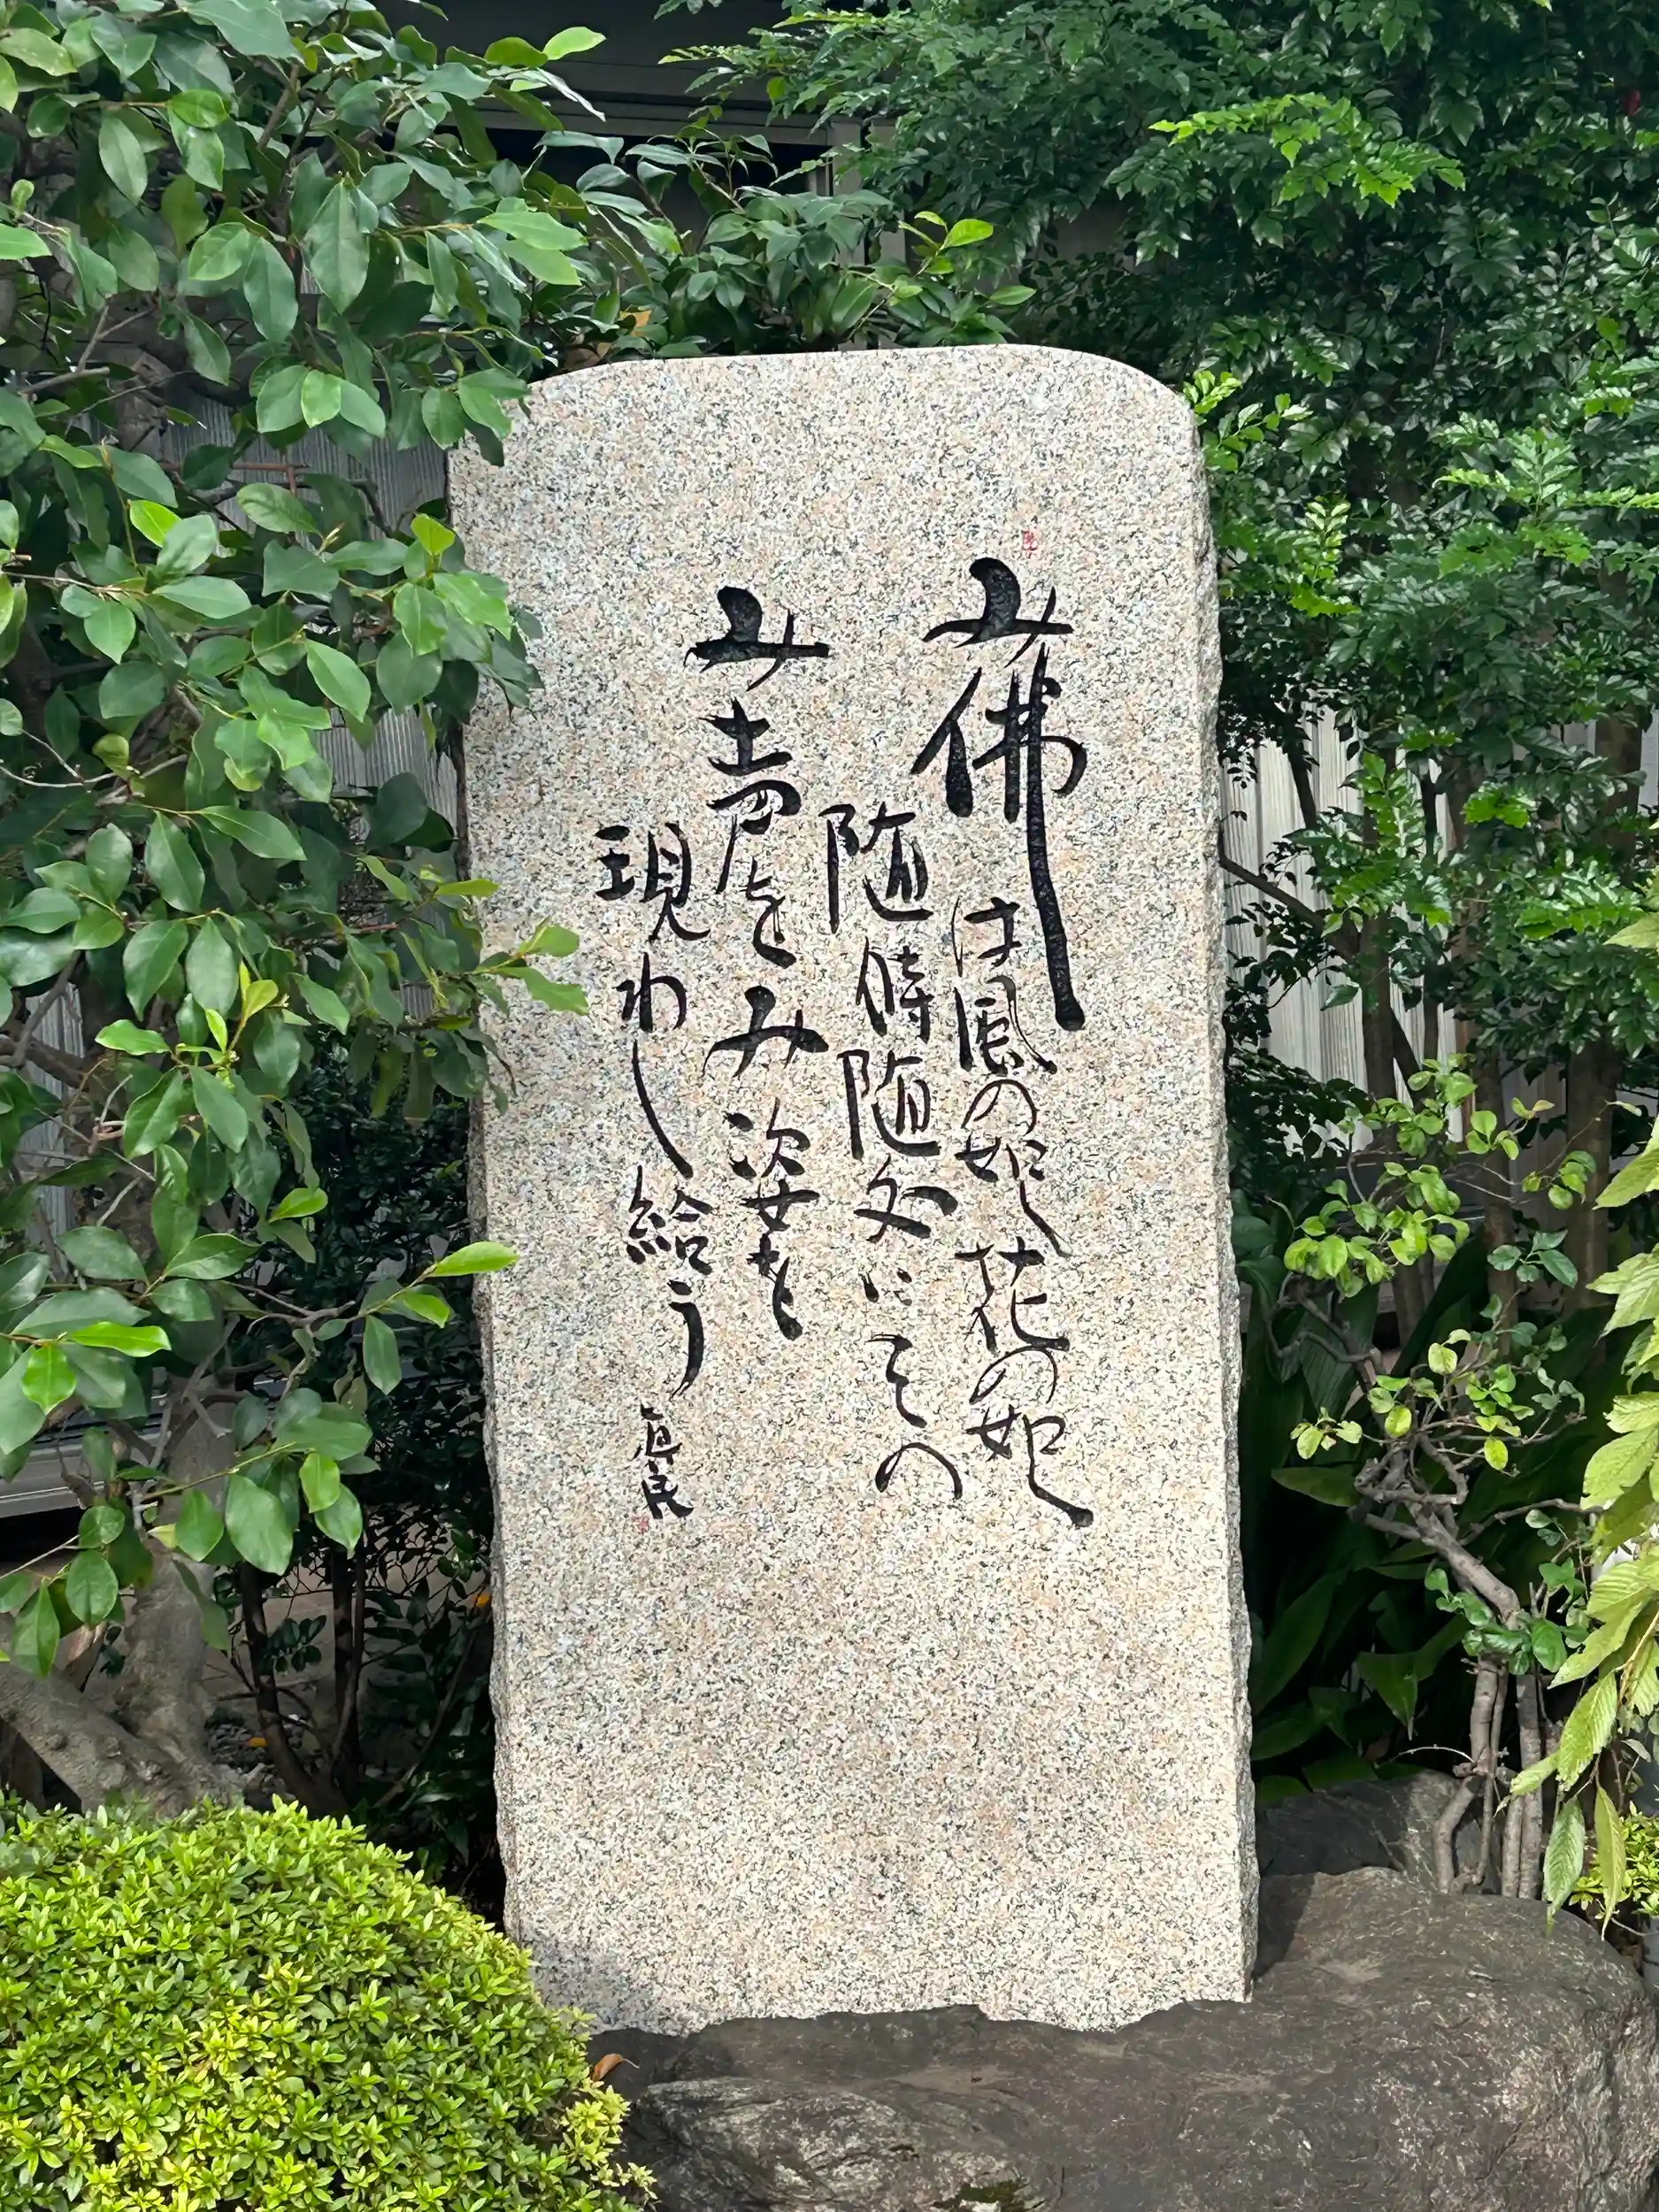 み佛は風の如し花の如し
随時随処にその
み声とみ姿を
現わし給う
真民